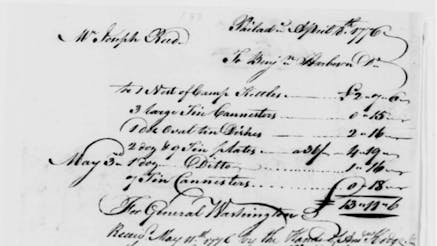 Philad.a April 8th 1776
Mr Joseph Reed
To Benj.n Harbeson Dr
to 1 Nest of Camp Kettles £2 " 9 " 6
3 large Tin Cannesters 0 " 15 "
1 doz Oval tin Dishes 2 " 16
2 doz & 9 Tin plates a 36/ 4 " 19 "
May 3d 1 doz Ditto 1 " 16
9 Tin Cannesters 0 18
13 " 
For General Washington
Receiv'd May 11th 1776 by the Hands of